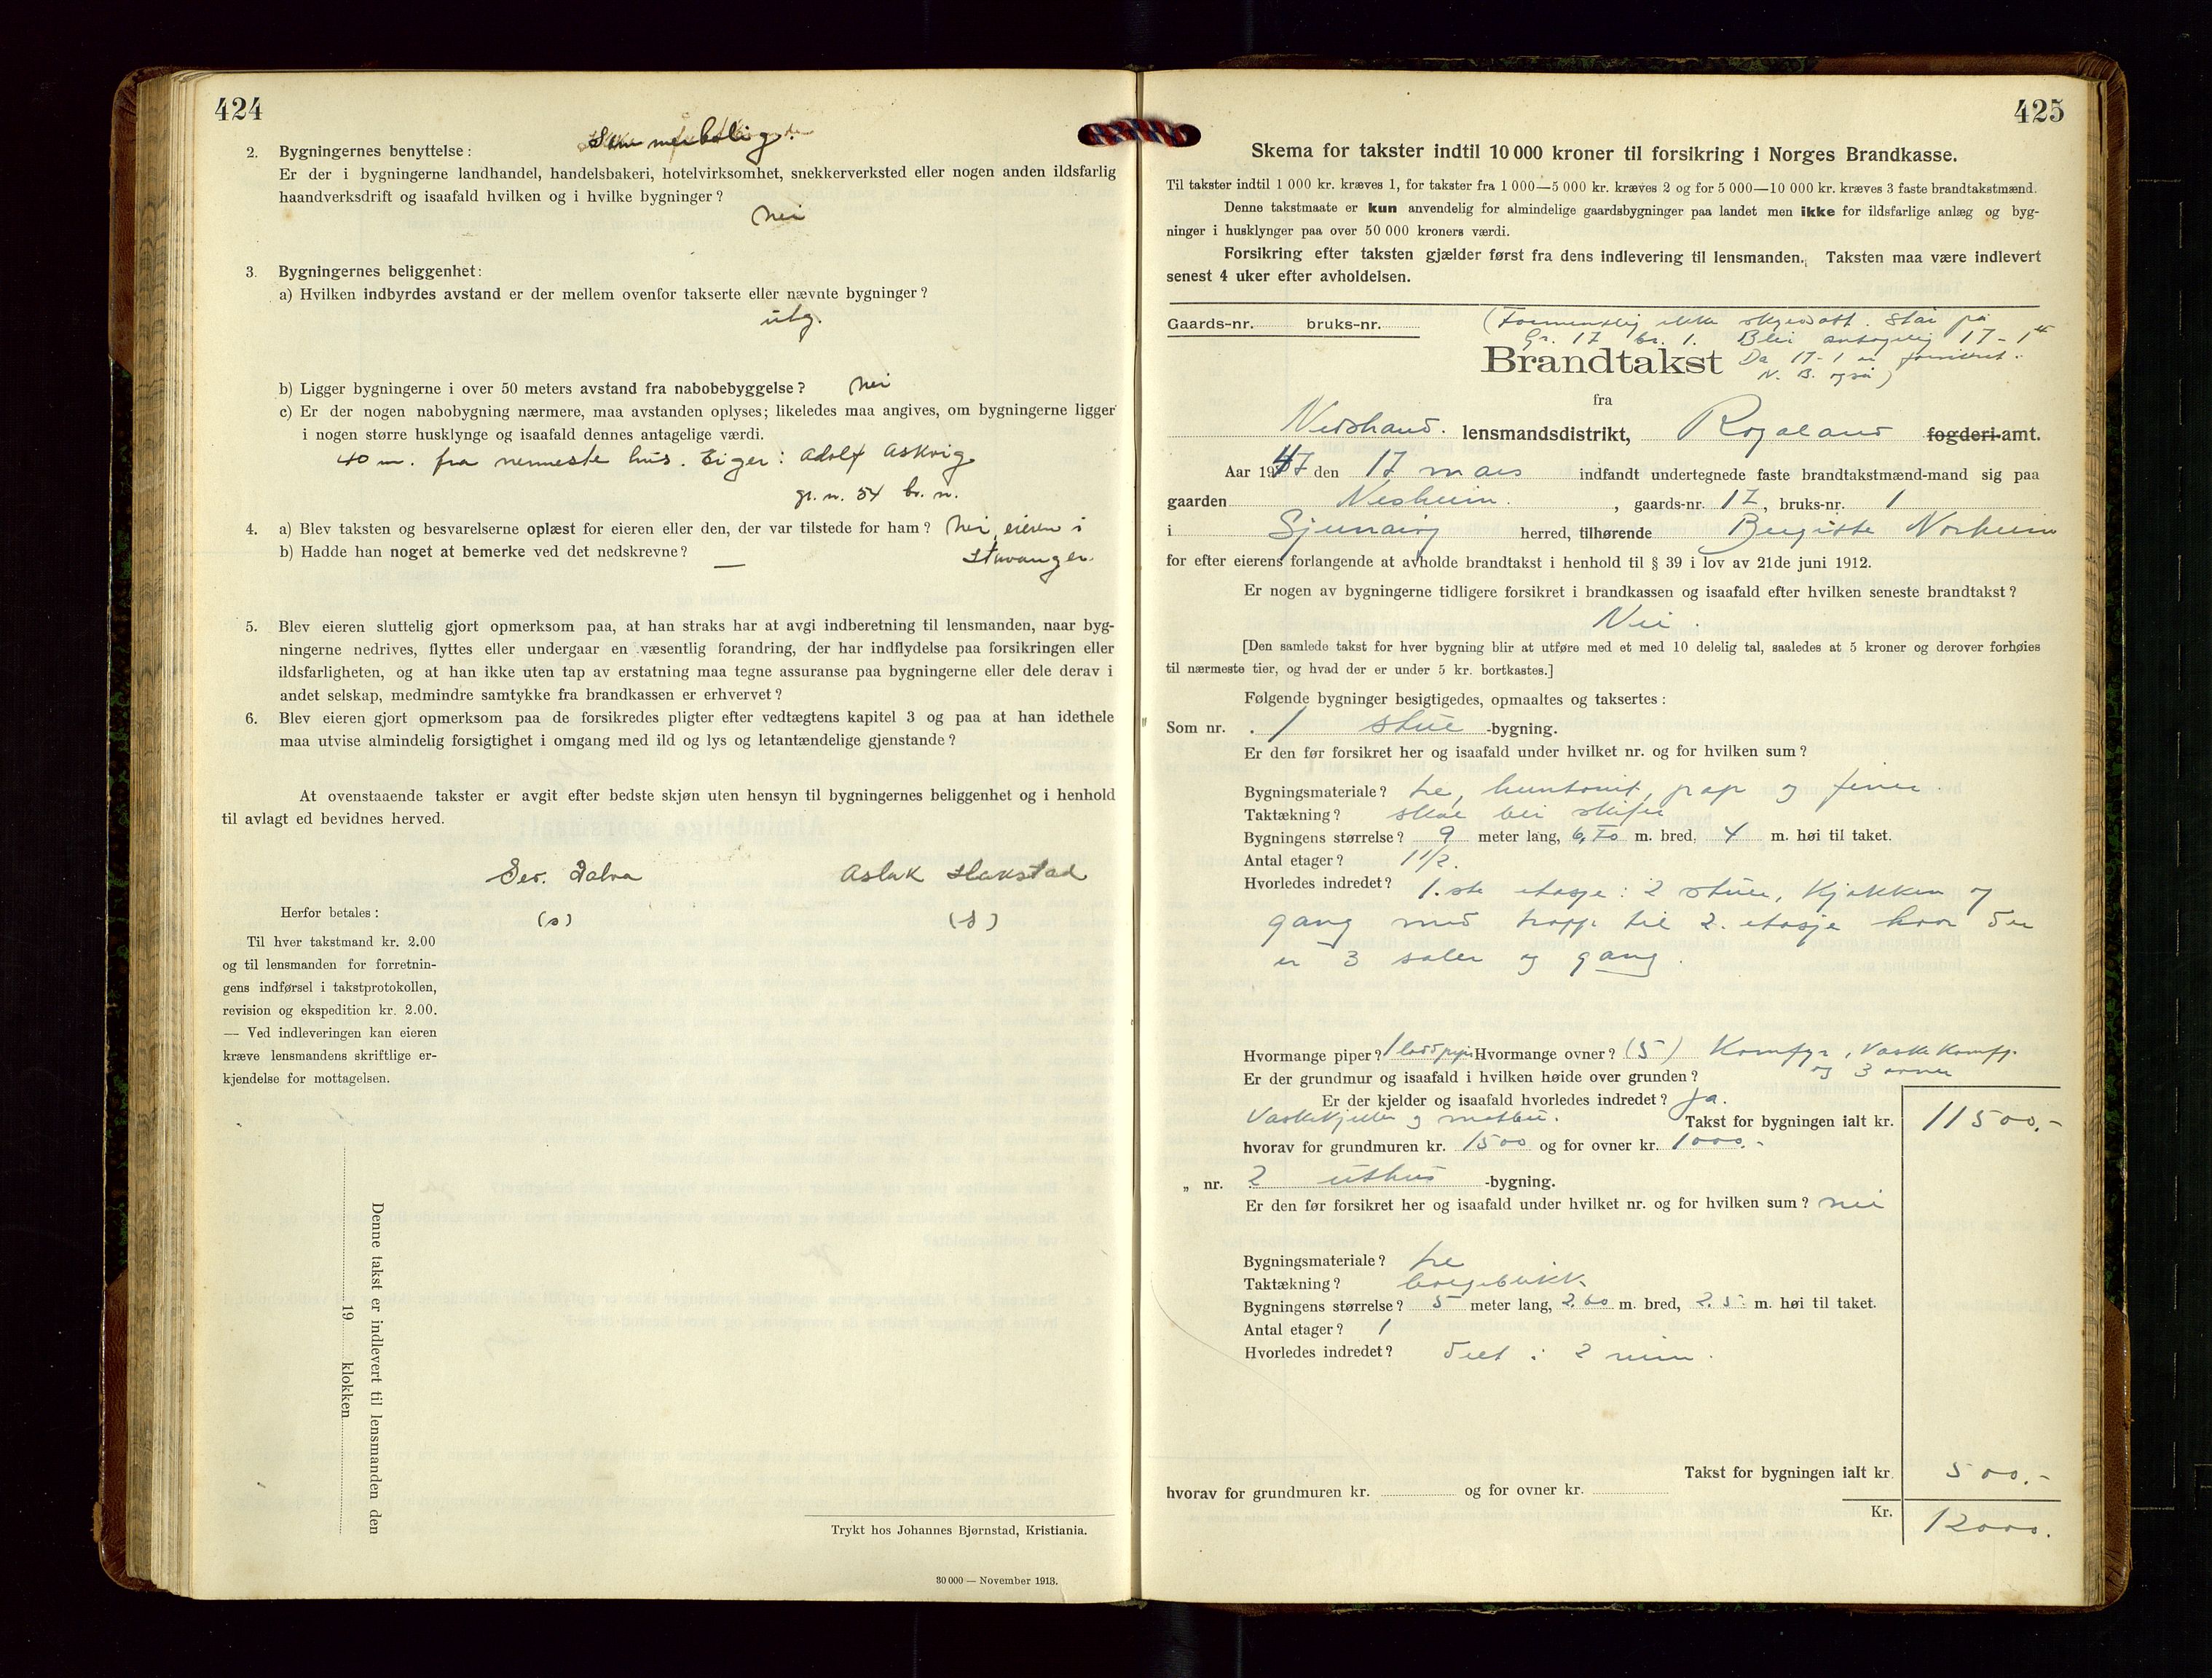 424
2. Bygningernes benyttelse:
Er der i bygningerne landhandel, handelsbakeri, hotelvirksomhet, snekkerverksted eller nogen anden ildsfarlig
haandverksdrift og isaafald hvilken og i hvilke bygninger?
Nei
3. Bygningernes beliggenhet:
a) Hvilken indbyrdes avstand er der mellem ovenfor takserte eller nævnte bygninger?
utg.
b) Ligger bygningerne i over 50 meters avstand fra nabobebyggelse? Nei
c) Er der nogen nabobygning nærmere, maa avstanden oplyses; likeledes maa angives, om bygningerne ligger
i nogen større husklynge og isaafald dennes antagelige værdi.
40 m. fra nermeste hus. Eiger: Adolf Askvig
gr. n. 54 br. n.
4. a) Blev taksten og besvarelserne oplæst for eieren eller den, der var tilstede for ham? Nei, eieren i
b) Hadde han noget at bemerke ved det nedskrevne? — Stavanger.
5. Blev eieren sluttelig gjort opmerksom paa, at han straks har at avgi indberetning til lensmanden, naar byg-
ningerne nedrives, flyttes eller undergaar en væsentlig forandring, der har indflydelse paa forsikringen eller
ildsfarligheten, og at han ikke uten tap av erstatning maa tegne assuranse paa bygningerne eller dele derav i
andet selskap, medmindre samtykke fra brandkassen er erhvervet?
6. Blev eieren gjort opmerksom paa de forsikredes pligter efter vedtægtens kapitel 3 og paa at han idethele
maa utvise almindelig forsigtighet i omgang med ild og lys og letantændelige gjenstande?
At ovenstaaende takster er avgit efter bedste skjøn uten hensyn til bygningernes beliggenhet og i henhold
til avlagt ed bevidnes herved.
Aslak Hakstad
(s) (s)
Herfor betales:
Til hver takstmand kr. 2.00
og til lensmanden for forretnin-
gens indførsel i takstprotokollen,
revision og ekspedition kr. 2.00.
— Ved indleveringen kan eieren
kræve lensmandens skriftlige er-
kjendelse for mottagelsen.
Denne takst er indlevert til lensmanden den
19 klokken
Trykt hos Johannes Bjørnstad, Kristiania.
30 000 — November 1913.
425
Skema for takster indtil 10 000 kroner til forsikring i Norges Brandkasse.
Til takster indtil 1 000 kr. kræves 1, for takster fra 1 000—5 000 kr. kræves 2 og for 5 000—10 000 kr. kræves 3 faste brandtakstmænd.
Denne takstmaate er kun anvendelig for almindelige gaardsbygninger paa landet men ikke for ildsfarlige anlæg og byg-
ninger i husklynger paa over 50 000 kroners værdi.
Forsikring efter taksten gjælder først fra dens indlevering til lensmanden. Taksten maa være indlevert
senest 4 uker efter avholdelsen.
Gaards-nr. bruks-nr.
(Formentlig ikke skyldsatt. Står på
Gr. 17 br. 1. Blir antagelig 17-1
Da 17-1 er forsikret.
N. B. også)
Brandtakst
fra
Nedstrand. lensmandsdistrikt, Rogaland fogderi-amt.
Aar 1947 den 17 mars indfandt undertegnede faste brandtakstmænd-mand sig paa
gaarden Nesheim. , gaards-nr. 17, bruks-nr. 1
i Sjernarøy herred, tilhørende Norheim
for efter eierens forlangende at avholde brandtakst i henhold til § 39 i lov av 21de juni 1912.
Er nogen av bygningerne tidligere forsikret i brandkassen og isaafald efter hvilken seneste brandtakst?
Nei.
[Den samlede takst for hver bygning blir at utføre med et med 10 delelig tal, saaledes at 5 kroner og derover forhøies
til nærmeste tier, og hvad der er under 5 kr. bortkastes.]
Følgende bygninger besigtigedes, opmaaltes og taksertes:
Som nr. 1 stue -bygning.
Er den før forsikret her og isaafald under hvilket nr. og for hvilken sum?
Bygningsmateriale? tre, huntonit, pap og finer
Taktækning? skal bli skifer
Bygningens størrelse? 9 meter lang, 6,50 m. bred, 4 m. høi til taket.
Antal etager? 1 1/2.
Hvorledes indredet? 1.ste etasje: 2 stuer, kjøkken og
gang med trapp til 2. etasje hvor der
er 3 saler og gang.
Hvormange piper? 1 Hvormange ovner? (5) Komfyr, Vaske Komfyr
og 3 ovner
Er der grundmur og isaafald i hvilken høide over grunden?
Er der kjelder og isaafald hvorledes indredet? Ja.
Vaskekjeller og matbu. Takst for bygningen ialt kr. 11500.-
hvorav for grundmuren kr. 1500 og for ovner kr. 1000.-
„ nr. 2 uthus -bygning.
Er den før forsikret her og isaafald under hvilket nr. og for hvilken sum? nei
Bygningsmateriale? tre
Taktækning? bølgeblikk
Bygningens størrelse? 5 meter lang, 2.60 m. bred, 2.5 m. høi til taket.
Antal etager? 1
Hvorledes indredet? Delt i 2 rum.
Takst for bygningen ialt kr. 500.-
hvorav for grundmuren kr. og for ovner kr.
Kr. 12000.